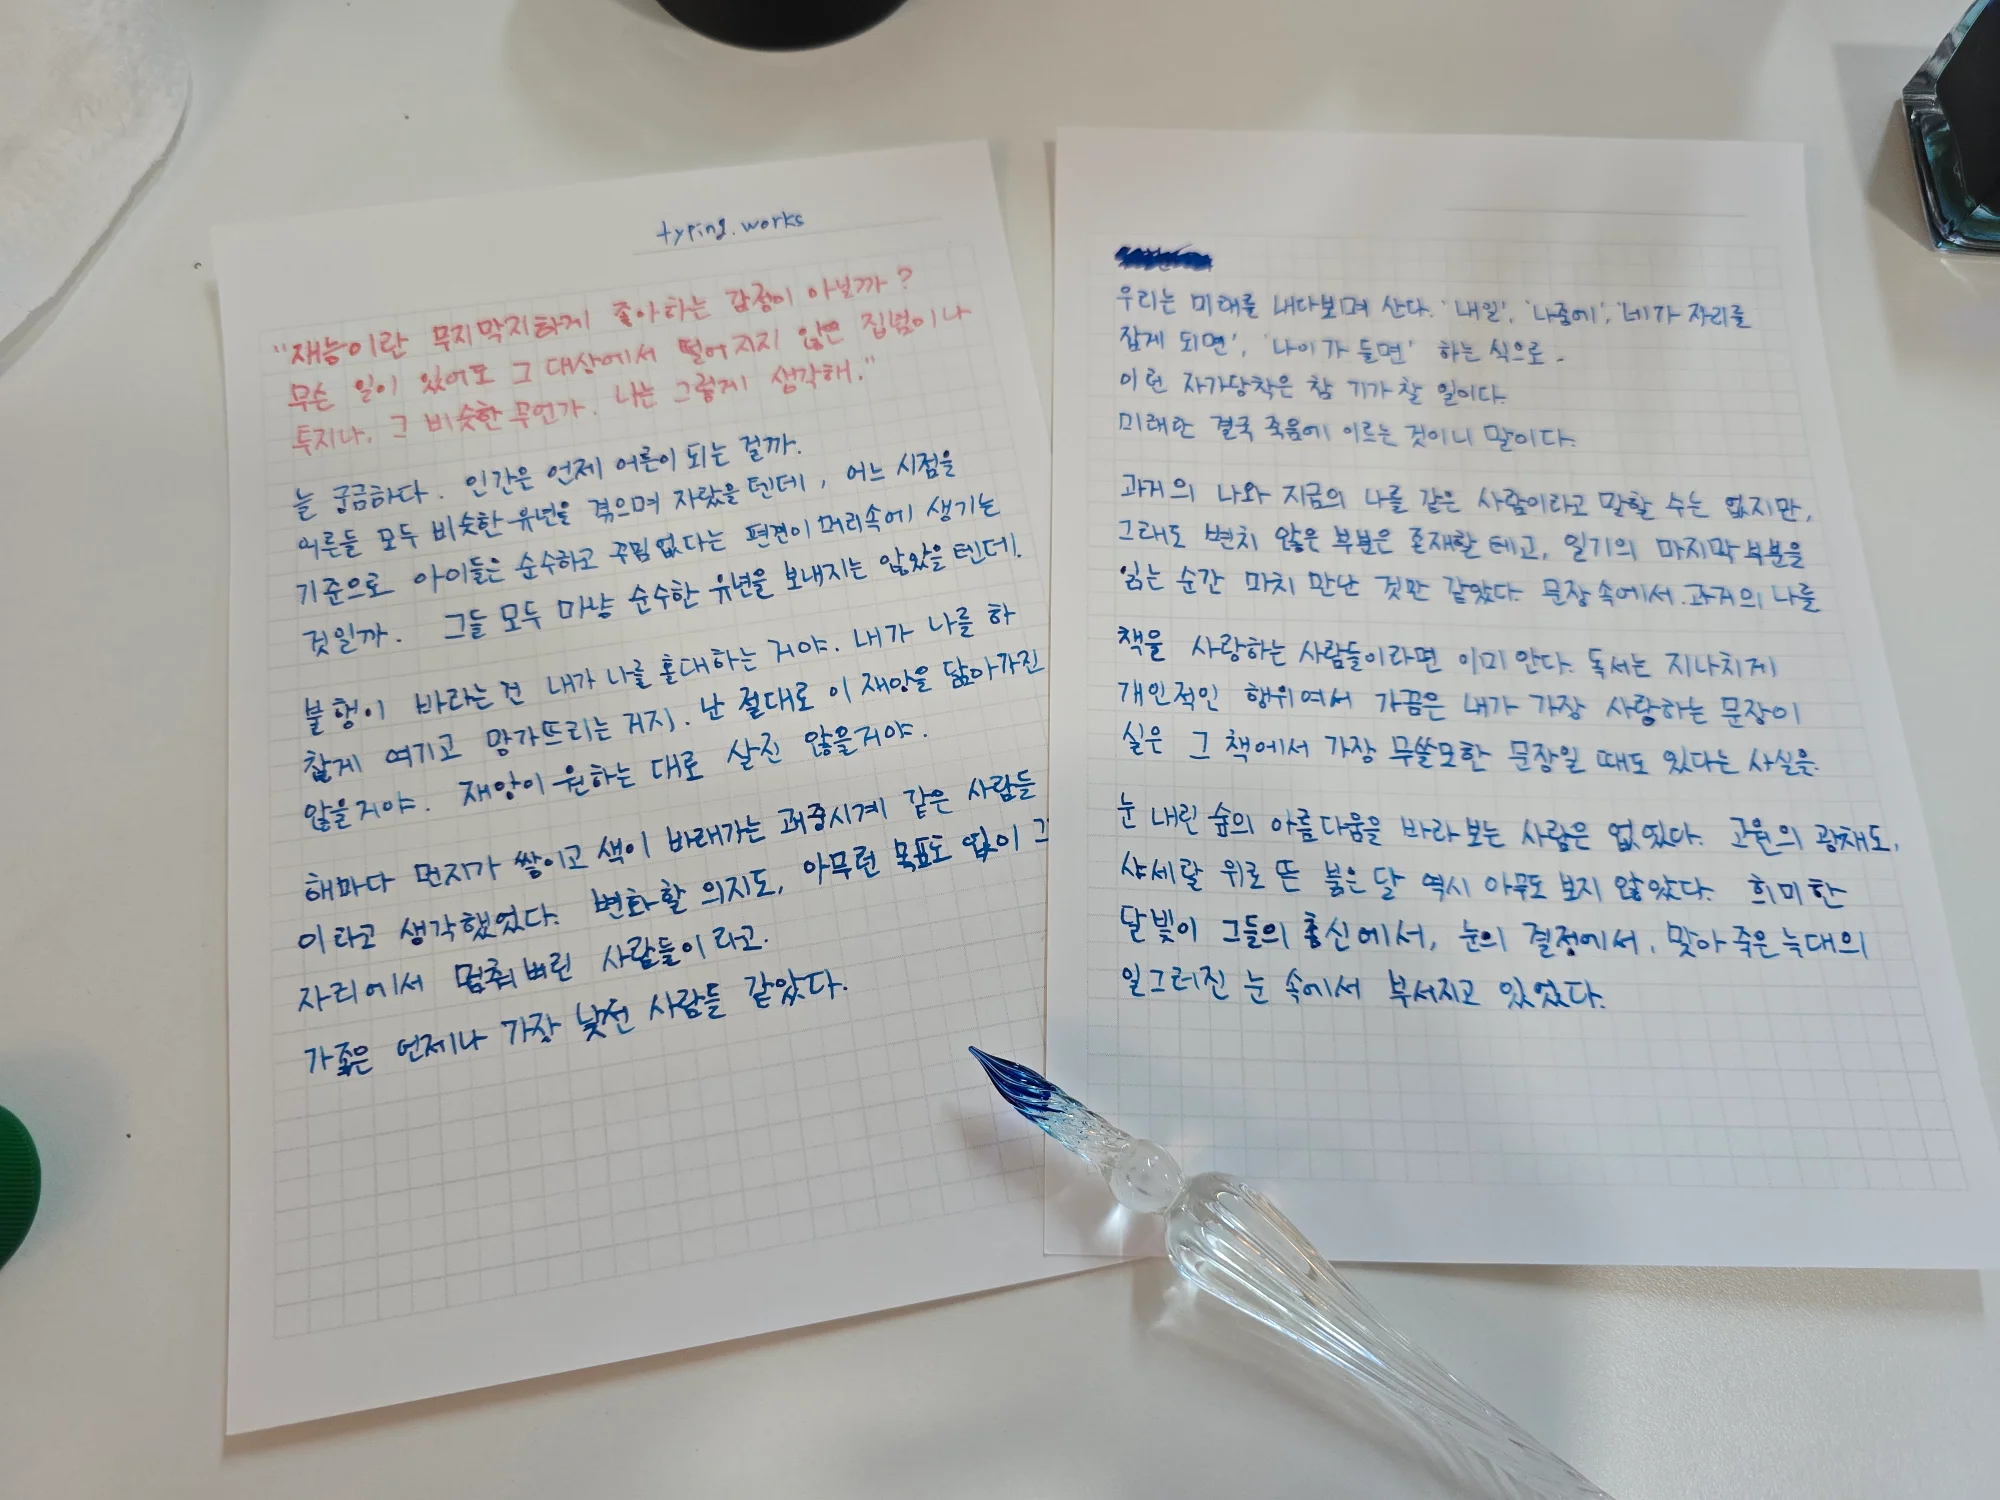 typing.works
"재능이란 무지막지하게 좋아하는 감정이 아닐까?
무슨 일이 있어도 그 대상에서 떨어지지 않는 집념이나
투지나, 그 비슷한 무언가. 나는 그렇게 생각해."
늘 궁금하다. 인간은 언제 어른이 되는 걸까.
어른들 모두 비슷한 유년을 겪으며 자랐을 텐데, 어느 시점을
기준으로 아이들은 순수하고 꾸밈없다는 편견이 머리속에 생기는
것일까. 그들 모두 마냥 순수한 유년을 보내지는 않았을 텐데.
불행이 바라는 건 내가 나를 홀대하는 거야. 내가 나를 하
찮게 여기고 망가뜨리는 거지. 난 절대로 이 재앙을 닮아가진
않을거야. 재앙이 원하는 대로 살진 않을거야.
해마다 먼지가 쌓이고 색이 바래가는 괘종시계 같은 사람들
이라고 생각했었다. 변화할 의지도, 아무런 목표도 없이 그
자리에서 멈춰버린 사람들이라고.
가족은 언제나 가장 낯선 사람들 같았다.
우리는 미래를 내다보며 산다. '내일', '나중에', '네가 자리를
잡게 되면', '나이가 들면' 하는 식으로.
이런 자가당착은 참 기가 찰 일이다.
미래란 결국 죽음에 이르는 것이니 말이다.
과거의 나와 지금의 나를 같은 사람이라고 말할 수는 없지만,
그래도 변치 않은 부분은 존재할 테고, 일기의 마지막 부분을
읽는 순간 마치 만난 것만 같았다. 문장 속에서 과거의 나를
책을 사랑하는 사람들이라면 이미 안다. 독서는 지나치게
개인적인 행위여서 가끔은 내가 가장 사랑하는 문장이
실은 그 책에서 가장 무쓸모한 문장일 때도 있다는 사실을.
눈 내린 숲의 아름다움을 바라보는 사람은 없었다. 고원의 광채도,
샤세랄 위로 뜬 붉은 달 역시 아무도 보지 않았다. 희미한
달빛이 그들의 총신에서, 눈의 결정에서, 맞아 죽은 늑대의
일그러진 눈 속에서 부서지고 있었다.